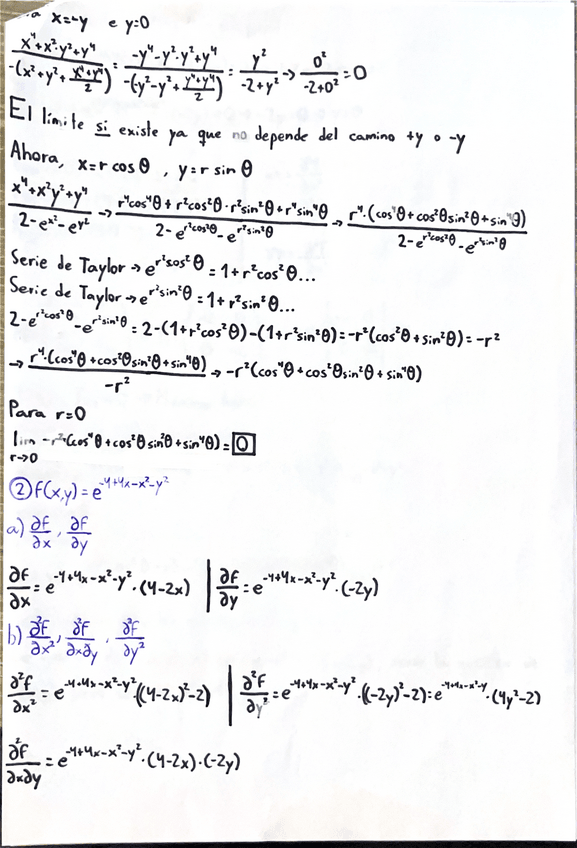 x=-y e y=0
x⁴+x²·y²+y⁴ / -(x²+y²+ (x⁴+y⁴)/2) = -y⁴-y²·y²+y⁴ / -(-y²-y²+ (y⁴+y⁴)/2) = y² / -2+y² → 0² / -2+0² = 0
El límite si existe ya que no depende del camino +y o -y
Ahora, x=r cos θ , y=r sin θ
x⁴+x²y²+y⁴ / 2-eˣ²-eʸ² → r⁴cos⁴θ + r²cos²θ·r²sin²θ+r⁴sin⁴θ / 2-e^(r²cos²θ)-e^(r²sin²θ) → r⁴·(cos⁴θ+cos²θsin²θ+sin⁴θ) / 2-e^(r²cos²θ)-e^(r²sin²θ)
Serie de Taylor → e^(r²cos²θ) = 1+r²cos²θ...
Serie de Taylor → e^(r²sin²θ) = 1+r²sin²θ...
2-e^(r²cos²θ)-e^(r²sin²θ) = 2-(1+r²cos²θ)-(1+r²sin²θ)=-r²(cos²θ+sin²θ)=-r²
→ r⁴·(cos⁴θ+cos²θsin²θ+sin⁴θ) / -r² → -r²(cos⁴θ+cos²θsin²θ+sin⁴θ)
Para r=0
lim r→0 -r²(cos⁴θ+cos²θsin²θ+sin⁴θ)=0
② f(x,y)=e^(-4+4x-x²-y²)
a) ∂f/∂x , ∂f/∂y
∂f/∂x = e^(-4+4x-x²-y²)·(4-2x) | ∂f/∂y = e^(-4+4x-x²-y²)·(-2y)
b) ∂²f/∂x², ∂²f/∂x∂y , ∂²f/∂y²
∂²f/∂x² = e^(-4+4x-x²-y²)·((4-2x)²-2) | ∂²f/∂y² = e^(-4+4x-x²-y²)·((-2y)²-2)=e^(-4+4x-x²-y)·(4y²-2)
∂²f/∂x∂y = e^(-4+4x-x²-y²)·(4-2x)·(-2y)